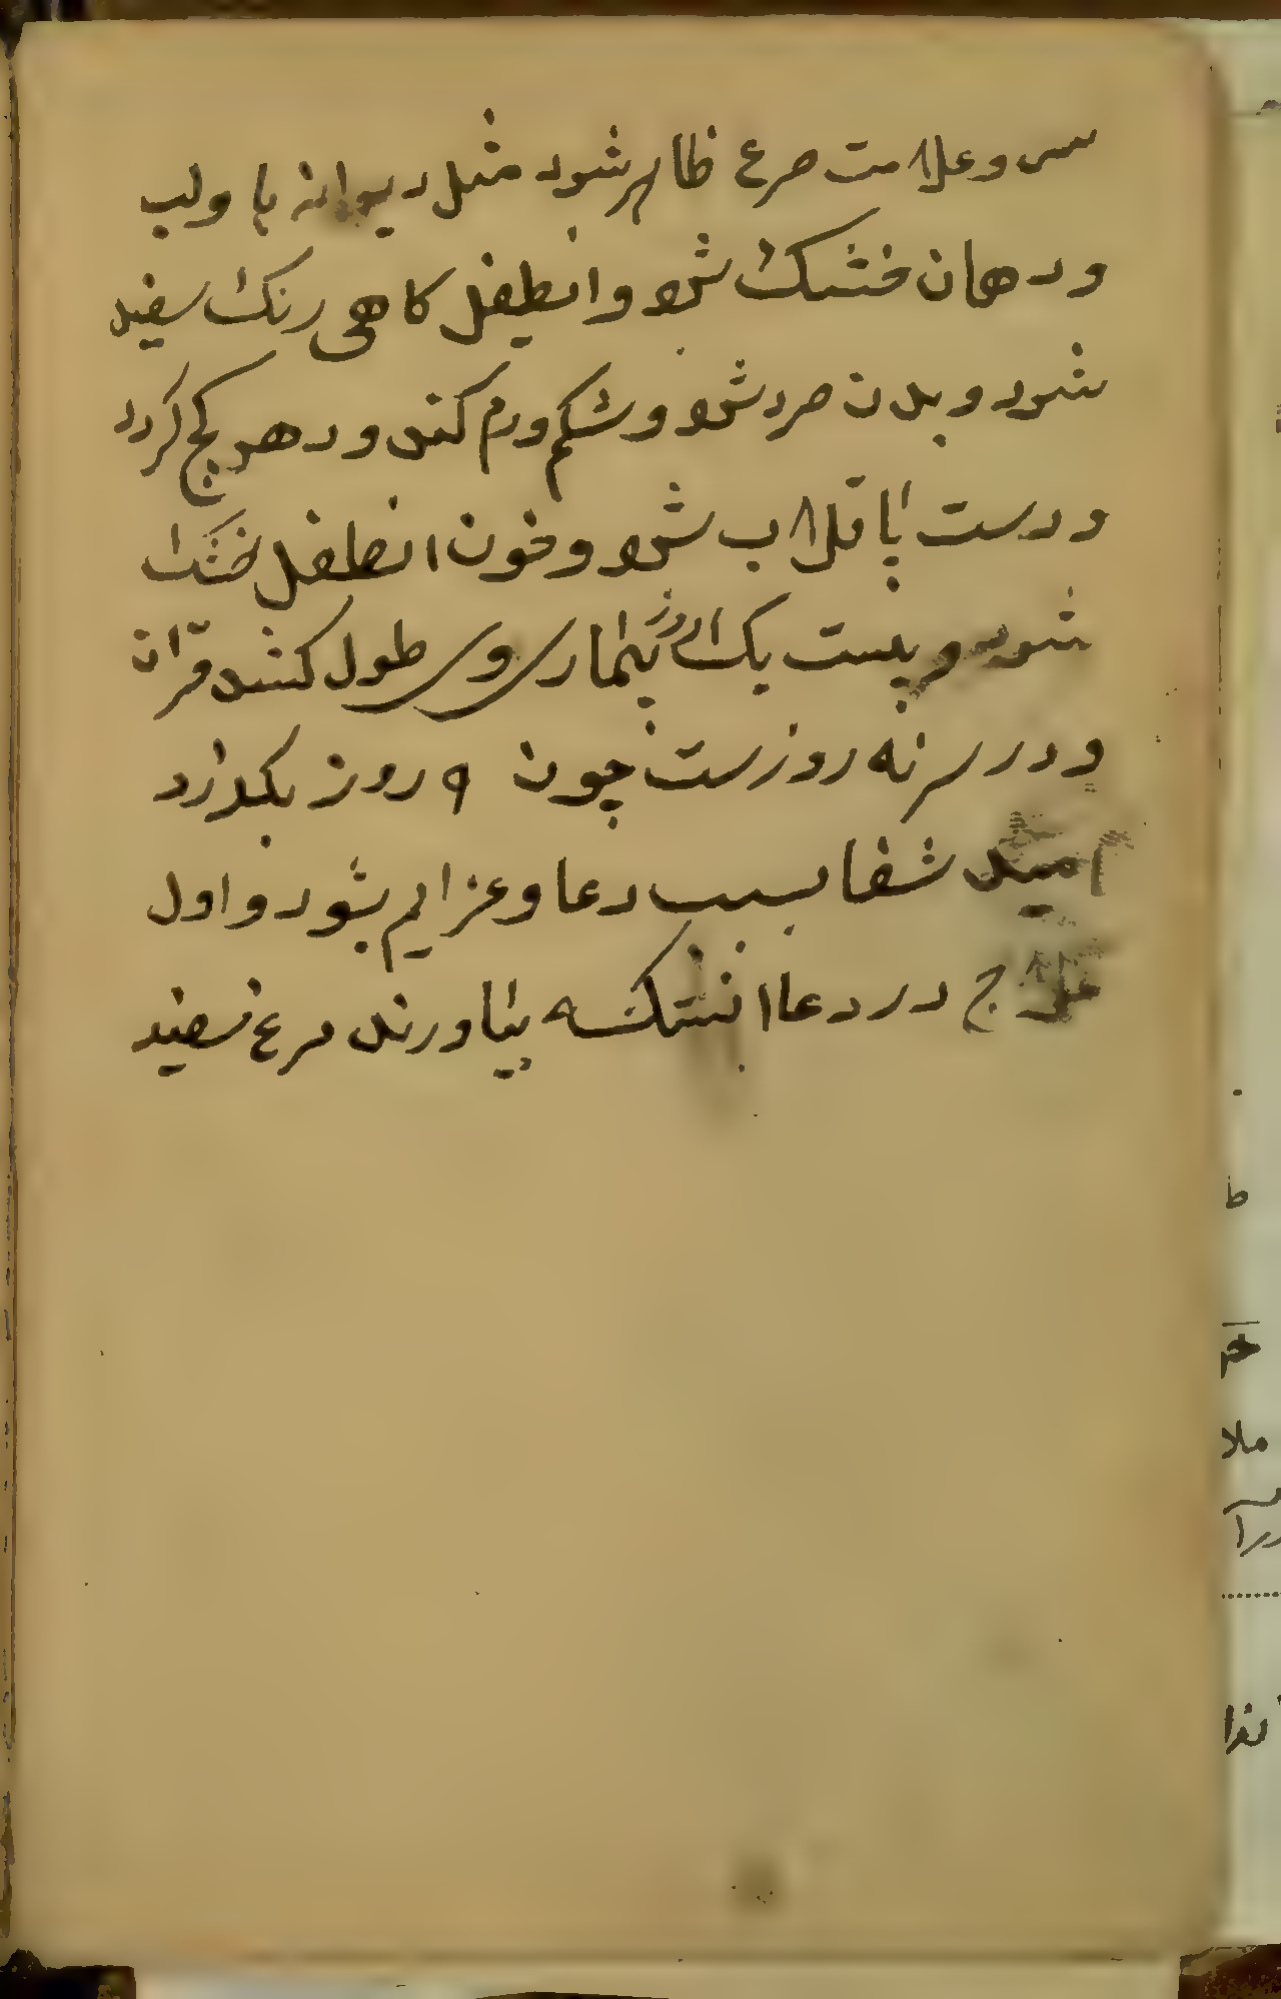 سی وعلامت صرع ظاهر شود مثل دیوانه ها ولب
ودهان خشک شود وانطفل کاهی رنک سفید
شود وبدن صرد شود وشکم ورم کند ودهن کج کردد
ودست پا قلاب شود وخون انطفل خشک
شود وبیست یک روز بیماری وی طول کشد قران
ودر سر نه روزست چون ۹ روز بکذرد
امید شفا بسبب دعا وعزایم بشود واول
علاج درد دعا انستکه بیاورند مرغ سفید